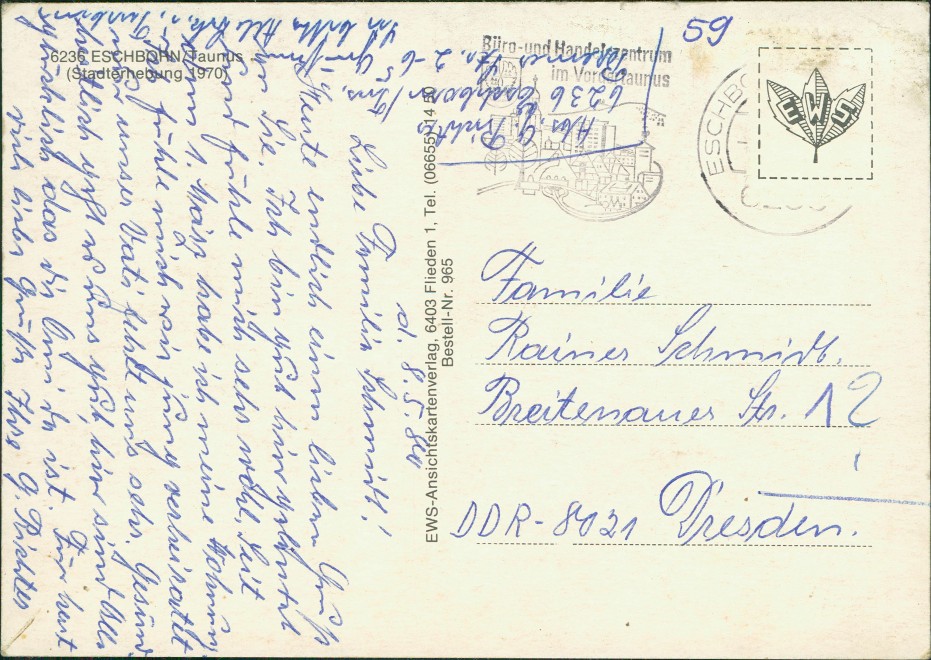 6236 ESCHBORN/Taunus
(Stadterhebung 1970)
d. 8.5.86
Liebe Familie Schmidt!
Heute endlich einen lieben Gruß
an Sie. Ich bin gut hier gelandet
und fühle mich sehr wohl. Seit
dem 1. März habe ich meine Wohnung
und fühle mich wie jung verheiratet
nur unser Vati fehlt uns sehr. Gesund
heitlich geht es uns gut hier sind alle
glücklich das die Omi da ist. Für heut
viele liebe Grüße Ihre G. Richter
EWS-Ansichtskartenverlag, 6403 Flieden 1, Tel. (06655) 14 50
Bestell-Nr. 965
Richter
6236 Eschborn/Tns.
Str. 2-6
59
Büro- und Handelszentrum
im Vordertaunus
ESCHBO
EWS
Familie
Rainer Schmidt.
Breitenauer Str. 12
DDR-8021 Dresden.